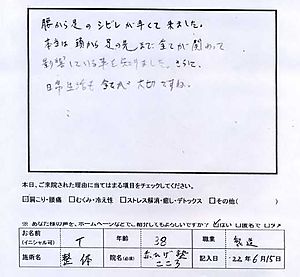 腰から足のシビレが辛くて来ました。
本当は頭から足の先まで全てが関わって
影響している事を知りました。さらに、
日常生活も全てが大切ですね。
本日、ご来院された理由に当てはまる項目をチェックしてください。
☑肩こり・腰痛 □むくみ・冷え性 □ストレス解消・癒し・デトックス □その他( )
※ あなた様の声を、ホームページなどで、紹介してもよろしいですか?
お名前 T 年齢 38 職業 製造
(イニシャル可)
施術名 整体 院名(必須) こころ 記入日 22年6月15日